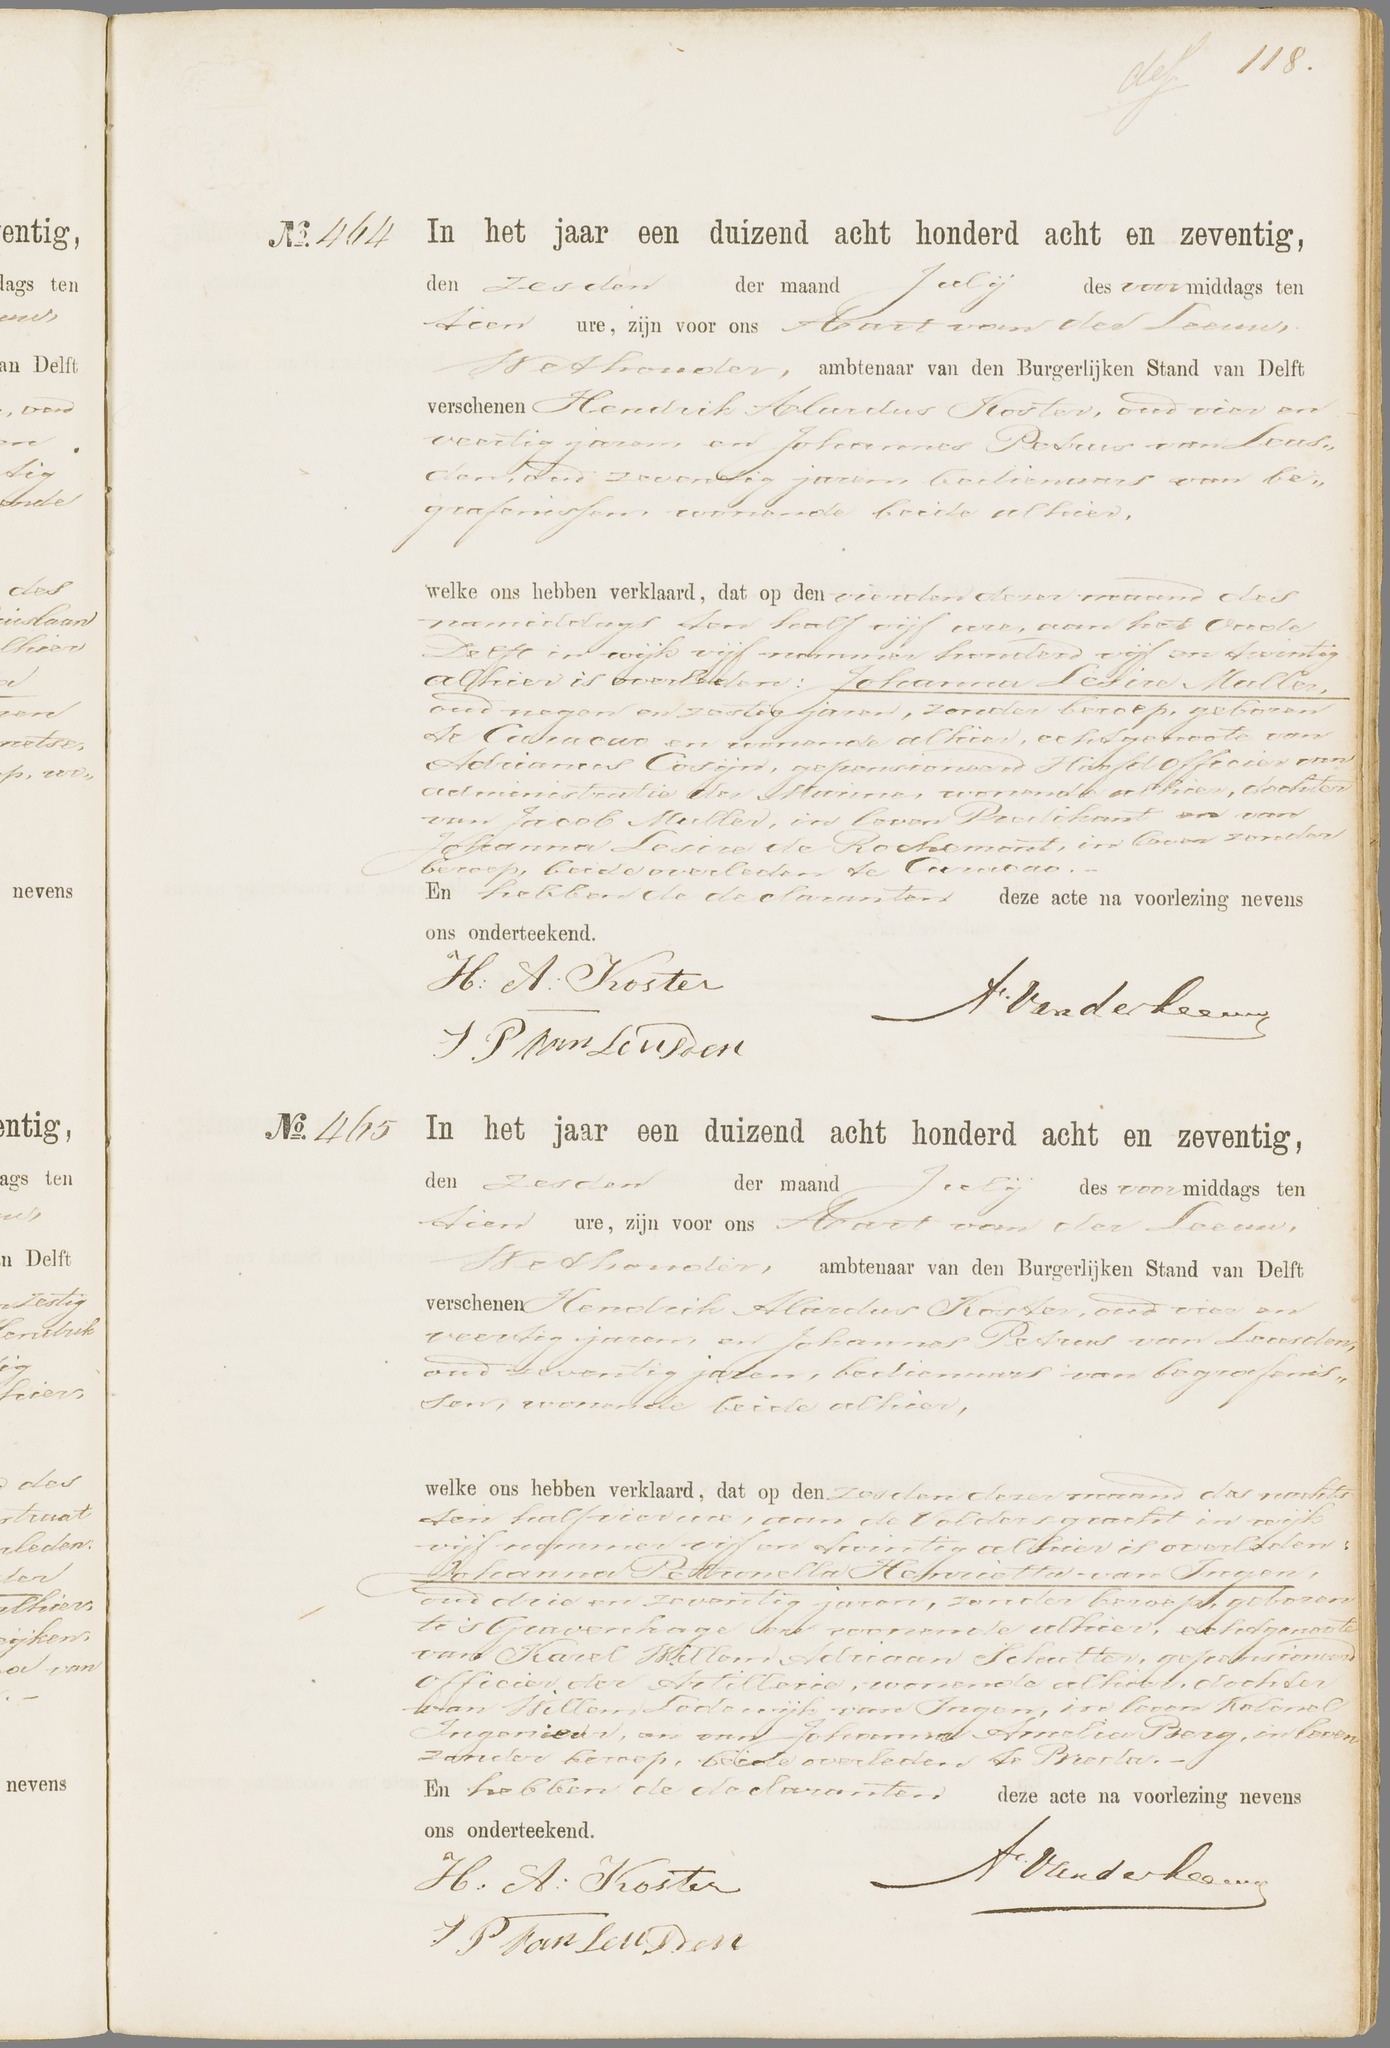 def 118.
No. 464 In het jaar een duizend acht honderd acht en zeventig,
den zesden der maand Julij des voormiddags ten
tien ure, zijn voor ons Aart van der Leeuw,
Wethouder, ambtenaar van den Burgerlijken Stand van Delft
verschenen Hendrik Alardus Koster, oud vier en
veertig jaren, en Johannes Petrus van Leus„
den, oud zeventig jaren, bedienaars van be„
grafenissen, wonende beide alhier,
welke ons hebben verklaard, dat op den vierden dezer maand des
namiddags ten half vijf ure, aan het Oude
Delft in wijk vijf nommer honderd vijf en twintig
alhier is overleden: Johanna Lesire Muller,
oud negen en zestig jaren, zonder beroep, geboren
te Curacao en wonende alhier, echtgenoote van
Adrianus Cosijn, gepensioneerd Hoofd Officier van
administratie der Marine, wonende alhier, dochter
van Jacob Muller, in leven Predikant en van
Johanna Lesire de Rochemont, in leven zonder
beroep, beide overleden te Curacao. –
En hebben de declaranten deze acte na voorlezing nevens
ons onderteekend.
H: A: Koster
A. Van der Leeuw
J P Van Leusden
No. 465 In het jaar een duizend acht honderd acht en zeventig,
den zesden der maand Julij des voormiddags ten
tien ure, zijn voor ons Aart van der Leeuw,
Wethouder, ambtenaar van den Burgerlijken Stand van Delft
verschenen Hendrik Alardus Koster, oud vier en
veertig jaren, en Johannes Petrus van Leusden,
oud zeventig jaren, bedienaars van begrafenis„
sen, wonende beide alhier,
welke ons hebben verklaard, dat op den zesden dezer maand des nachts
ten half vier ure, aan de Voldersgracht in wijk
vijf nommer vijf en twintig alhier is overleden:
Johanna Petronella Henrietta van Ingen,
oud drie en zeventig jaren, zonder beroep, geboren
te 's Gravenhage en wonende alhier, echtgenoote
van Karel Willem Adriaan Schutter, gepensioneerd
Officier der Artillerie, wonende alhier, dochter
van Willem Lodewijk van Ingen, in leven Kolonel
Ingenieur, en van Johanna Amelia Berg, in leven
zonder beroep, beide overleden te Breda. –
En hebben de declaranten deze acte na voorlezing nevens
ons onderteekend.
H. A: Koster
A. Van der Leeuw
J P Van Leusden